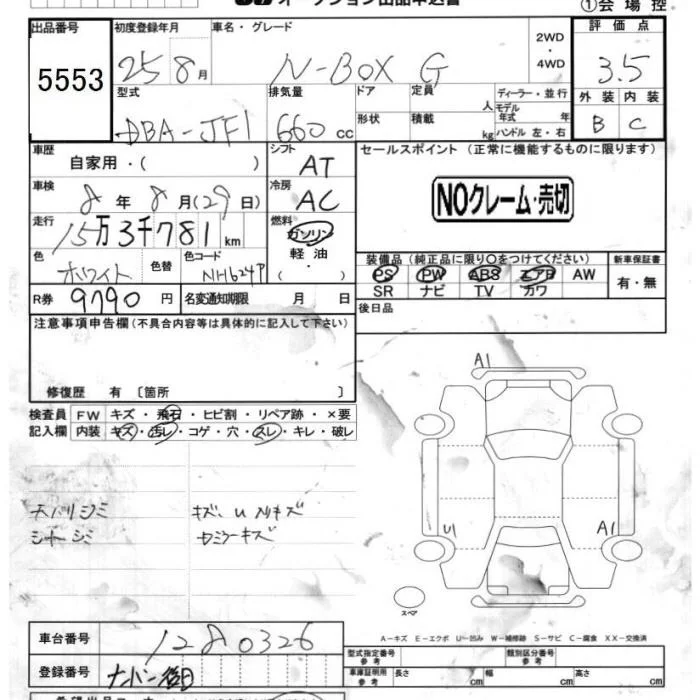 オークション出品申込書
①会場控
出品番号 5553
初度登録年月 25 8月
車名・グレード N-BOX G
2WD・4WD
評価点 3.5
外装 B 内装 C
型式 DBA-JF1
排気量 660cc
ドア 形状
定員 人 積載 kg
ディーラー・並行
モデル年式 年
ハンドル 左・右
車歴 自家用・( )
シフト AT
セールスポイント (正常に機能するものに限ります)
NOクレーム・売切
車検 8年8月(29日)
冷房 AC
走行 15万3千781km
燃料 ガソリン 軽油 ・( )
色 ホワイト 色替
色コード NH624P
装備品(純正品に限り〇をつけてください)
PS PW ABS エアB AW
SR ナビ TV カワ
新車保証書 有・無
R券 9790円
名変通知期限 月 日
後日品
注意事項申告欄(不具合内容等は具体的に記入して下さい)
修復歴 有〔箇所 〕
検査員記入欄
FW キズ・飛石・ヒビ割・リペア跡・×要
内装 キズ・汚レ・コゲ・穴・スレ・キレ・破レ
A1
天バリシミ キズ、UNリキズ
シートシミ セミラーキズ
U1
A1
スペア
A-キズ E-エクボ U-凹み W-補修跡 S-サビ C-腐食 XX-交換済
車台番号 1280326
型式指定番号 参考
類別区分番号 参考
登録番号 ナンバー後日
車庫証明用 参考 長さ cm 幅 cm 高さ cm